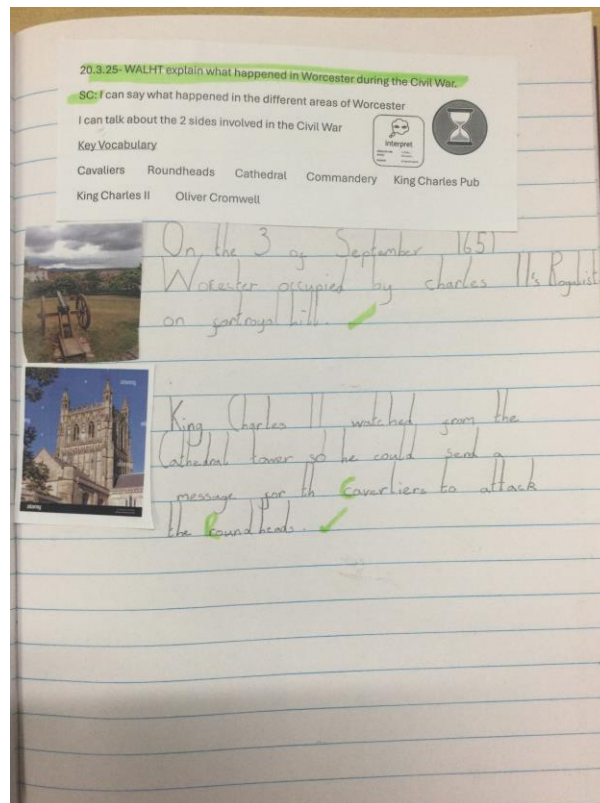 20.3.25- WALHT explain what happened in Worcester during the Civil War.
SC: I can say what happened in the different areas of Worcester
I can talk about the 2 sides involved in the Civil War
Interpret
Key Vocabulary
Cavaliers Roundheads Cathedral Commandery King Charles Pub
King Charles II Oliver Cromwell
On the 3 of September 1651
Worester occupied by charles II's Royalist
on fortroyal hill.
King Charles II watched from the
Cathedral tower so he could send a
message for th Caverliers to attack
the Roundheads.
alamy
alamy